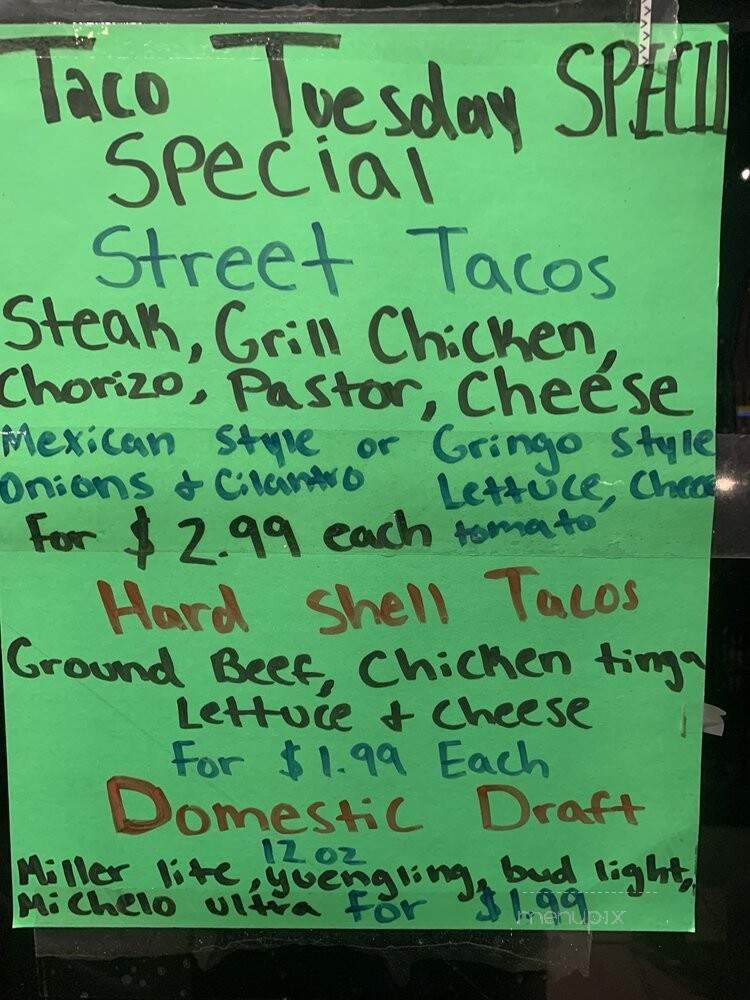 Taco Tuesday SPECIL
Special
Street Tacos
Steak, Grill Chicken,
Chorizo, Pastor, Cheese
Mexican Style or Gringo Style
Onions & Cilantro Lettuce, Cheese
For $2.99 each tomato
Hard Shell Tacos
Ground Beef, Chicken tinga
Lettuce & Cheese
For $1.99 Each
Domestic Draft
12 oz
Miller lite, yuengling, bud light,
Michelo ultra For $1.99
menupix